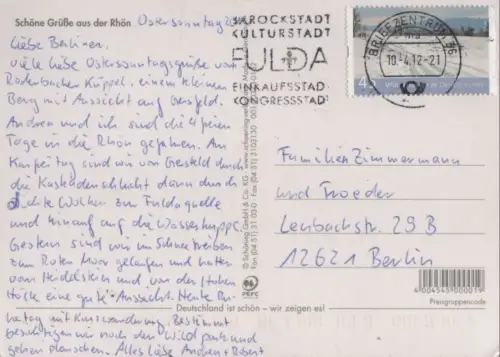 Schöne Grüße aus der Rhön
Ostersonntag
Liebe Berliner,
viele liebe Ostersonntagsgrüße vom
Rodenbacher Küppel, einem kleinen
Berg mit Aussicht auf Gersfeld.
Andrea und ich sind die 4 freien
Tage in die Rhön gefahren. Am
Karfreitag sind wir von Gersfeld durch
die Kaskadenschlucht dann durch
dichte Wolken zur Fuldaquelle
und hinauf auf die Wasserkuppe.
Gestern sind wir im Schneetreiben
zum Roten Moor gelaufen und hatten
vom Heidelstein und von der Hohen
eine gute Aussicht. Heute Ru-
hetag mit Kurzwanderung. Bestimmt
besichtigen wir noch den Wildpark und
gehen planschen. Alles Liebe Andrea + Robert
© Schöning GmbH & Co. KG
PEFC
BAROCKSTADT
KULTURSTADT
FULDA
EINKAUFSSTADT
KONGRESSSTADT
BRIEFZENTRUM 36
10.4.12-21
Familien Zimmermann
und Troeder
Lenbachstr. 29 B
12621 Berlin
4 004545 000019
Preisgruppencode
Deutschland ist schön – wir zeigen es!